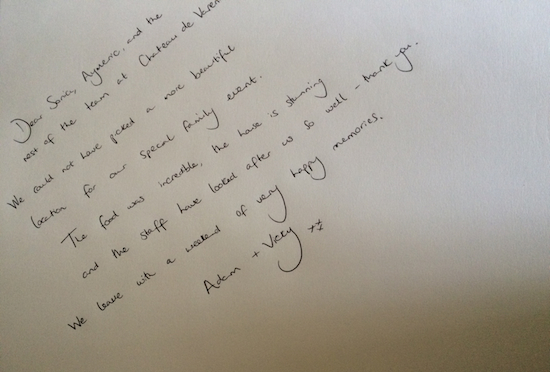 Dear Sonia, Aymeric, and the
rest of the team at Chateau de Varen
We could not have picked a more beautiful
location for our special family event.
The food was incredible, the house is stunning
and the staff have looked after us so well - thank you.
We leave with a weekend of very happy memories.
Adam + Vicky xx